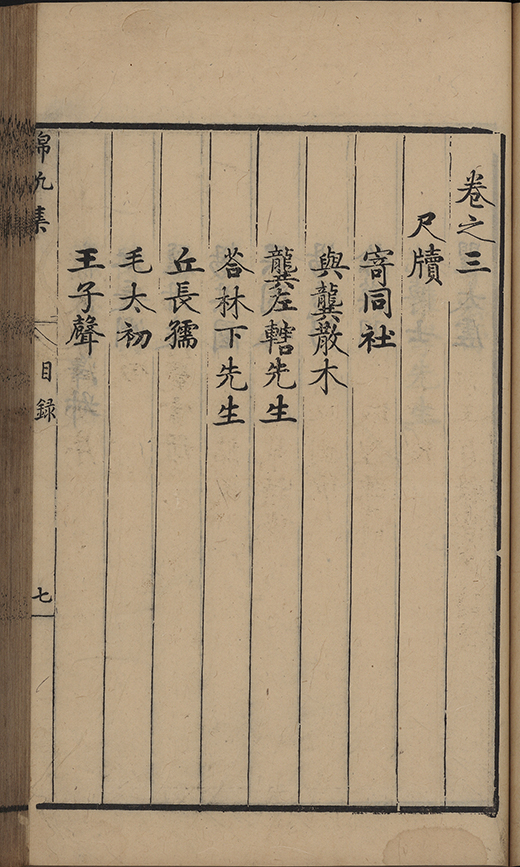 卷之三
尺牘
寄同社
與龔散木
龔左轄先生
荅林下先生
丘長孺
毛太初
王子聲
錦九集
目録
七